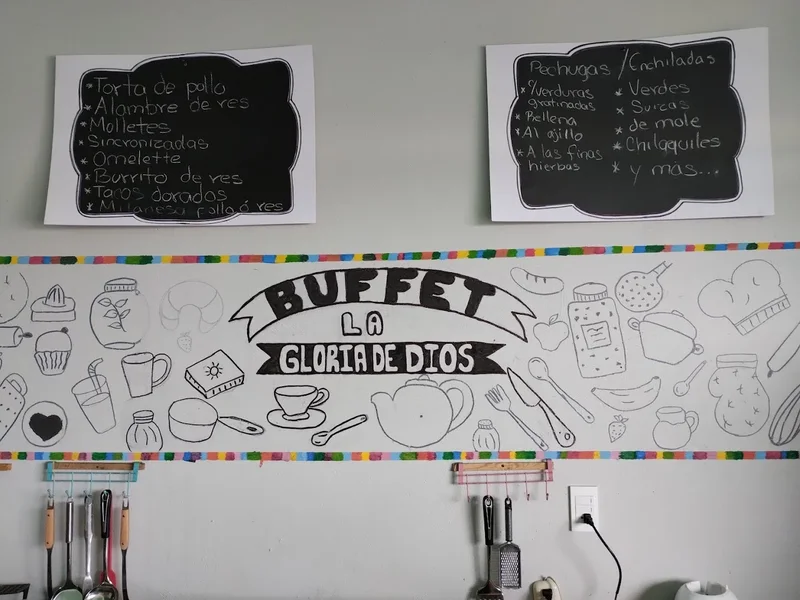 * Torta de pollo
* Alambre de res
* Molletes
* Sincronizadas
* Omelette
* Burrito de res
* Tacos dorados
* Milanesa pollo ó res
Pechugas / Enchiladas
* c/verduras
gratinadas
* Rellena
* Al ajillo
* A las finas
hierbas
* Verdes
* Suizas
* de mole
* Chilaquiles
* y más...
BUFFET
LA
GLORIA DE DIOS